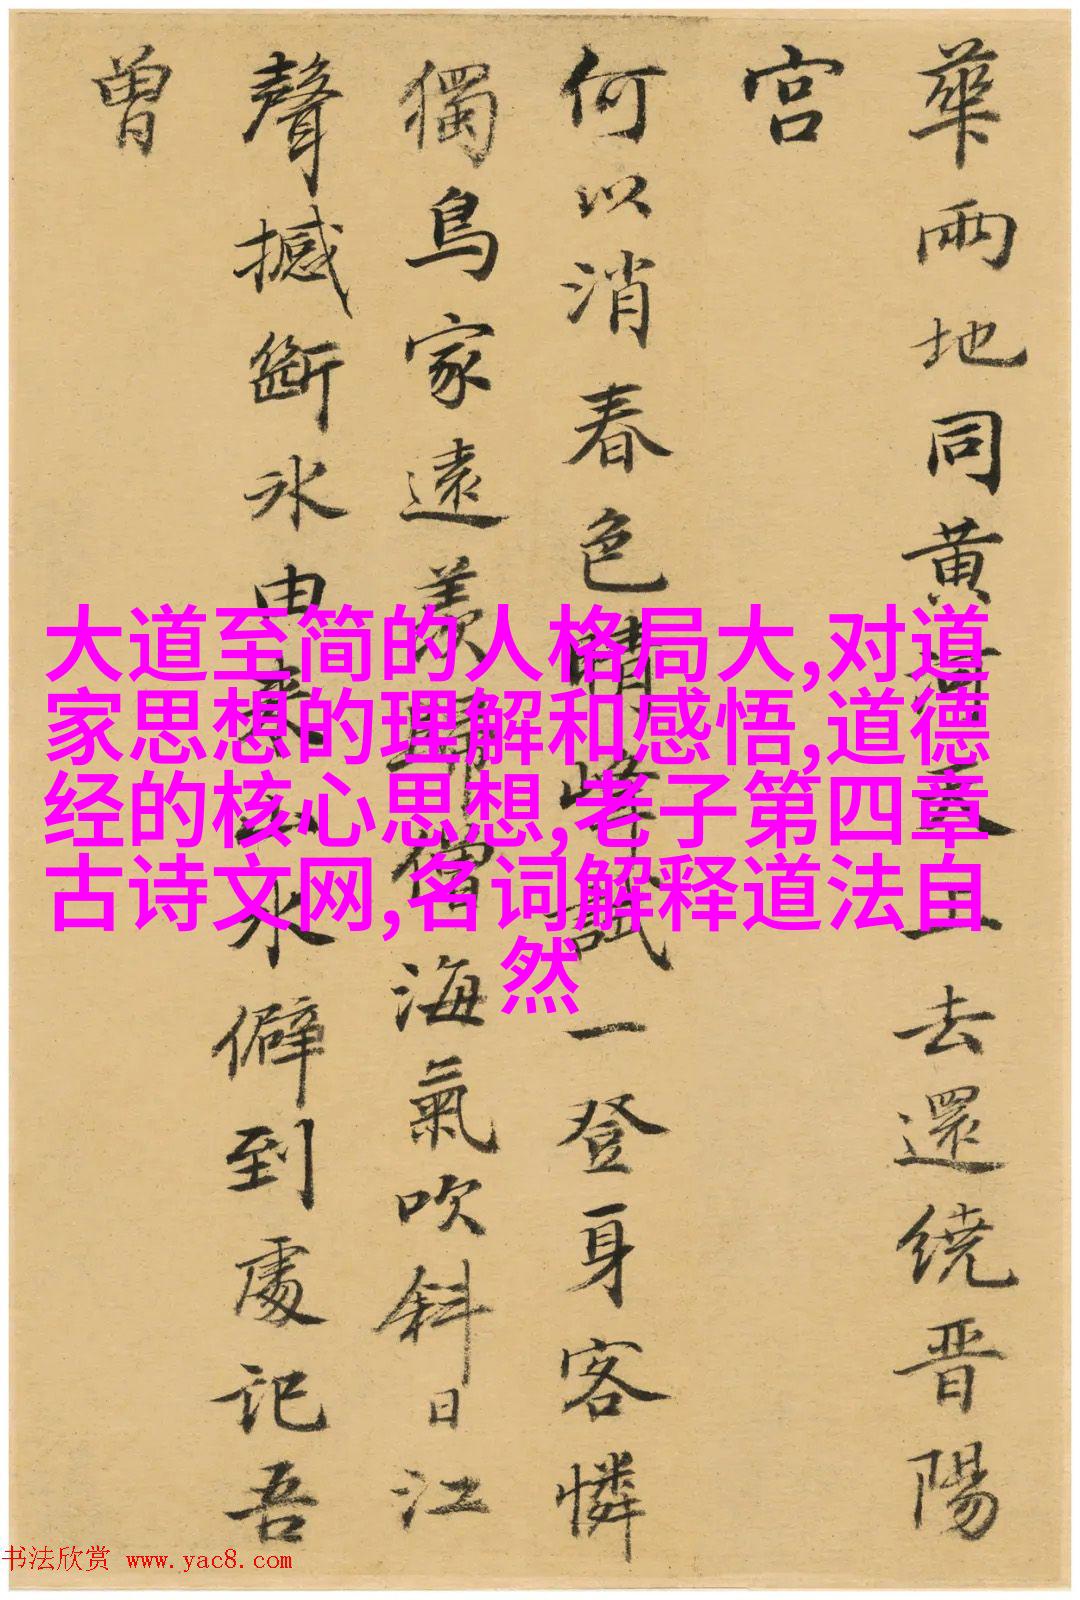 華兩地同黄河天上去還繞晋陽
宫
何以消春色晴峰試一登身客憐
獨鳥家遠羡歸僧海氣吹斜日江
聲撼斷冰由來山水僻到處記吾
曾
大道至简的人格局大,对道
家思想的理解和感悟,道德
经的核心思想,老子第四章
古诗文网,名词解释道法自
然
书法欣赏 www.yac8.com